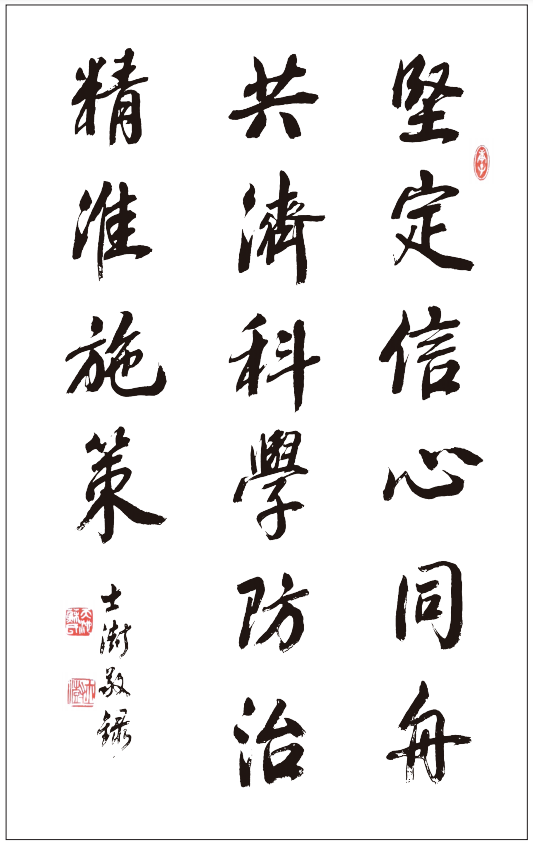 堅定信心同舟
共濟科學防治
精准施策
士澍敬錄